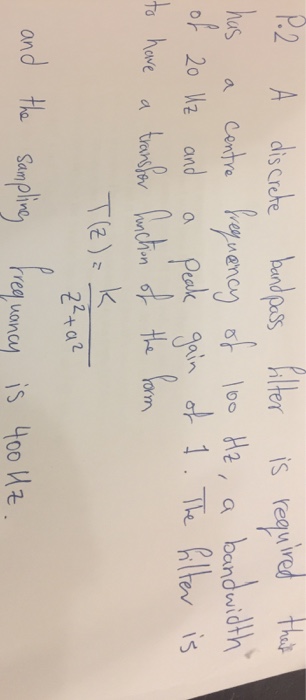 P.2 A discrete bandpass filter is required that
has a centre frequency of 100 Hz, a bandwidth
of 20 Hz and a peak gain of 1. The filter is
to have a transfer function of the form
T(z) = K / z²+a²
and the sampling frequency is 400 Hz.